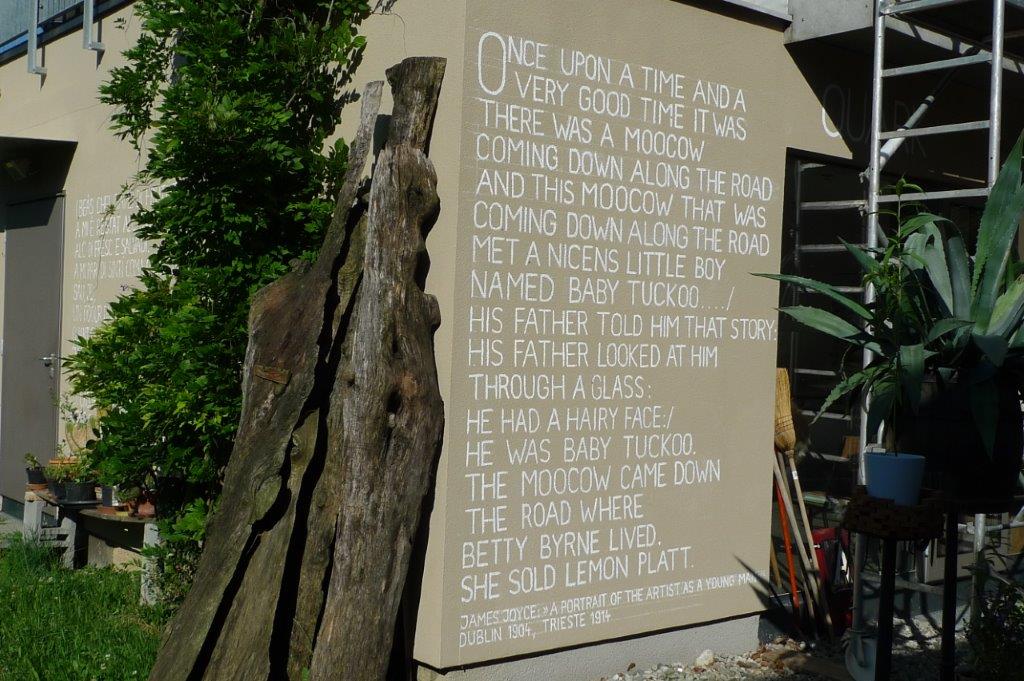 ONCE UPON A TIME AND A
VERY GOOD TIME IT WAS
THERE WAS A MOOCOW
COMING DOWN ALONG THE ROAD
AND THIS MOOCOW THAT WAS
COMING DOWN ALONG THE ROAD
MET A NICENS LITTLE BOY
NAMED BABY TUCKOO..../
HIS FATHER TOLD HIM THAT STORY:
HIS FATHER LOOKED AT HIM
THROUGH A GLASS:
HE HAD A HAIRY FACE:/
HE WAS BABY TUCKOO.
THE MOOCOW CAME DOWN
THE ROAD WHERE
BETTY BYRNE LIVED.
SHE SOLD LEMON PLATT.
JAMES JOYCE: »A PORTRAIT OF THE ARTIST AS A YOUNG MAN
DUBLIN 1904, TRIESTE 1914